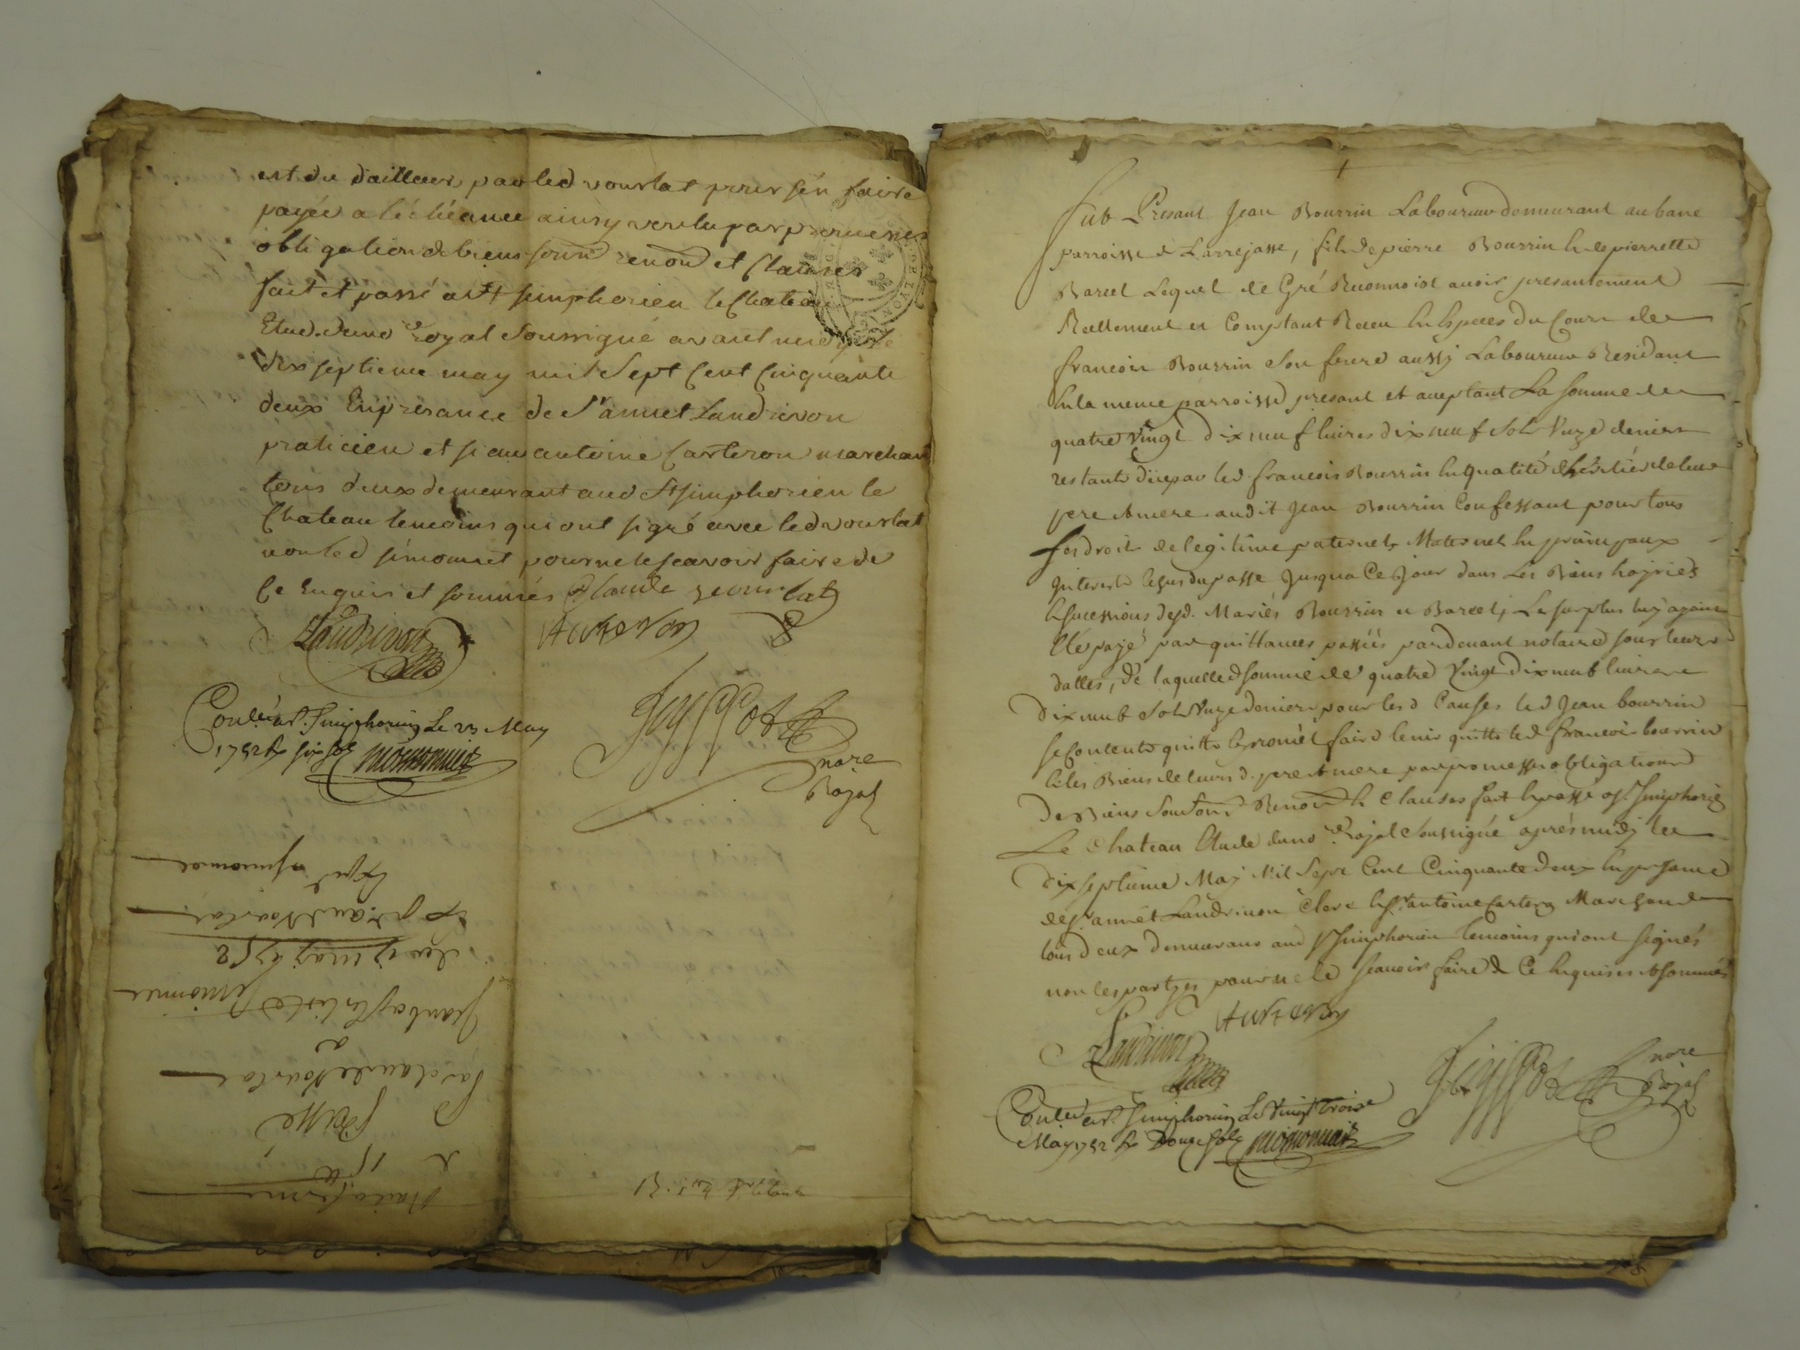 est du d'ailleur par led vourlat pour s'en faire
payée a l'échéance ainsy voulu par promesses
obligation de biens soum renon et Clauses
fait et passé a St simphorien le Chateau
Etude du no.re Royal Soussigné avant midy le
dix septieme may mil Sept Cent Cinquante
deux En présance de Sr annet Landrivon
praticien et sieur antoine Carteron marchand
tous deux demeurant aud St simphorien le
Chateau temoins qui ont signé avec led vourlat
non led simonnet pour ne le scavoir faire de
Ce Enquis et sommés Claude vourlat
Landrivon
Conllé a St Simphorien Le 23 May
1752 six
nore
Royal
Exp.
le 17 may 1752
Jean baptiste
a
par claude Vourlat
Sub Présant Jean Bourrin Laboureur demeurant au banc
parroisse de Larrejasse, fils de pierre Bourrin & de pierrette
Barcel Lequel de Gré Reconnoist avoir presantement
Reellement et Comptant Receu En Especes du Cours de
francois Bourrin Son frere aussi Laboureur Residant
En la meme parroisse presant et aceptant La somme de
quatre vingt dix neuf livres dix neuf Sols Unze deniers
restante düe par led francois Bourrin En qualité d'héritié de leur
pere & mere audit Jean Bourrin Confessant pour tous
ses droits de legitime paternel, Maternel En principaux
Interests Echus du passe Jusqua Ce Jour dans Les Biens hoiries
& sucessions desd. Mariés Bourrin et Barcel, Le surplus luy ayant
Eté payé par quittances passées pardevant notaire sous leurs
dattes, de laquelle somme de quatre Vingt dix neuf livres
dix neuf Sols Unze deniers pour lesd Causes led Jean bourrin
se Contente quitte & promet faire tenir quitte led francois bourrin
& les Biens de leursd. pere & mere par promesses obligations
de Biens Soum Renon & Clauses fait & passé a St Simphorien
Le Chateau Etude du no.re Royal Soussigné après midy le
dix septiéme May Mil Sept Cent Cinquante deux En presance
de Sr annet Landrivon Clerc & Sr antoine Carteron Marchand
tous deux demeurant aud St Simphorien temoins qui ont signés
non les partyes pour ne le Scavoir faire de Ce Enquises & sommées
Landrivon
nore
Royal
Conllé a St Simphorien Le Vingt trois
May 1752 Douze sols